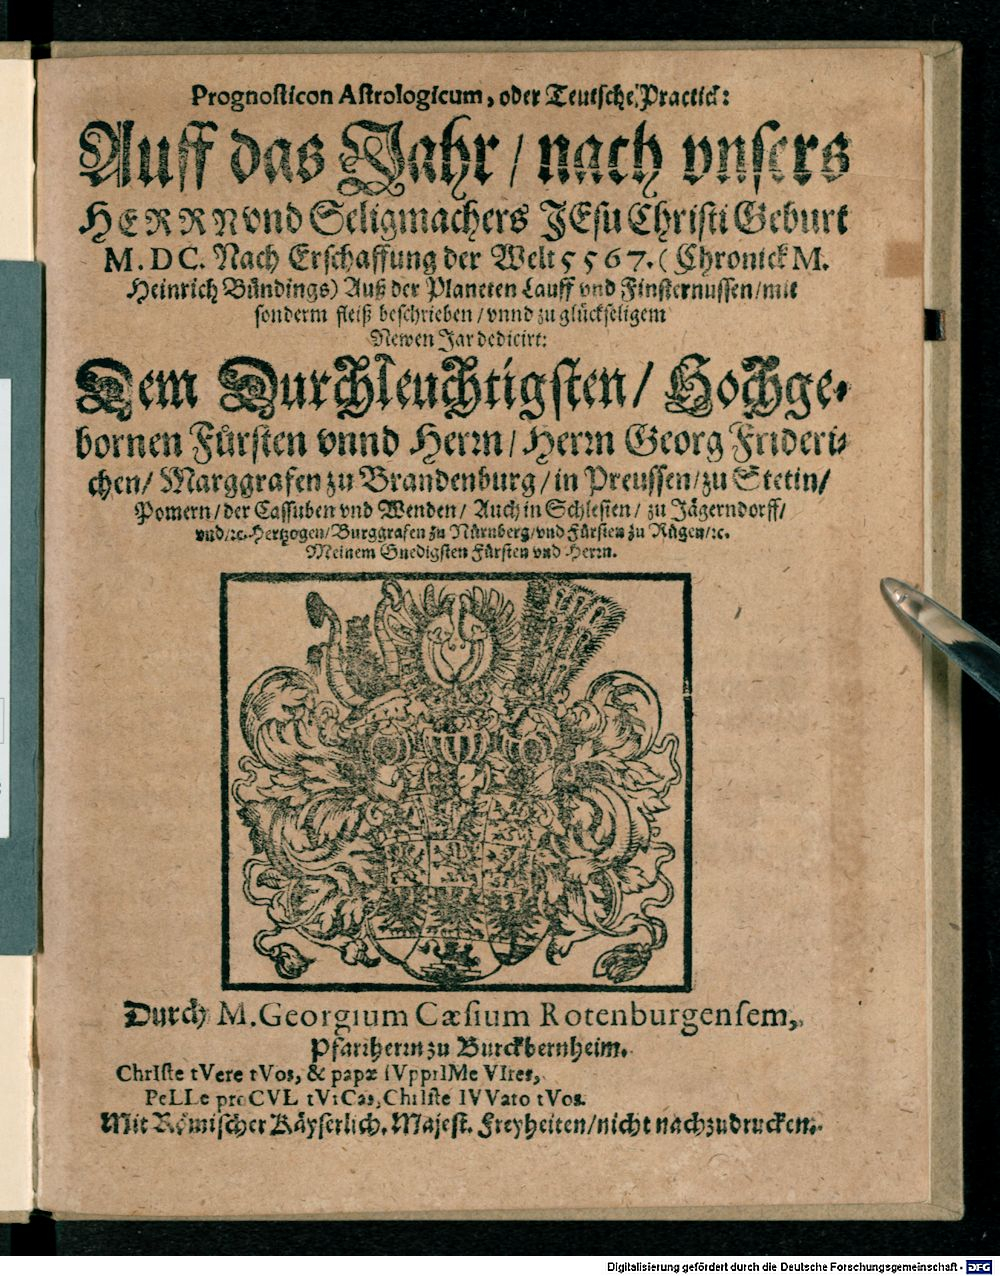 Prognosticon Astrologicum, oder Teutsche Practick:
Auff das Jahr / nach vnsers
HERRN vnd Seligmachers JEsu Christi Geburt
M. DC. Nach Erschaffung der Welt 5567. (Chronick M.
Heinrich Bündings) Auß der Planeten Lauff vnd Finsternussen / mit
sonderm fleiß beschrieben / vnnd zu glückseligem
Newen Jar dedicirt:
Dem Durchleuchtigsten / Hochge-
bornen Fürsten vnnd Herrn / Herrn Georg Frideri-
chen / Marggrafen zu Brandenburg / in Preussen / zu Stetin /
Pomern / der Cassuben vnd Wenden / Auch in Schlesien / zu Jägerndorff /
vnd / ꝛc. Hertzogen / Burggrafen zu Nürnberg / vnd Fürsten zu Rügen / ꝛc.
Meinem Gnedigsten Fürsten vnd Herrn.
Durch M. Georgium Cæsium Rotenburgensem,
Pfarrherrn zu Burckbernheim.
ChrIste tVere tVos, & papæ
PeLLe proCVL, ChrIste IVVato tVos.
Mit Römischer Käyserlich. Majest. Freyheiten / nicht nachzudrucken.
Digitalisierung gefördert durch die Deutsche Forschungsgemeinschaft - DFG